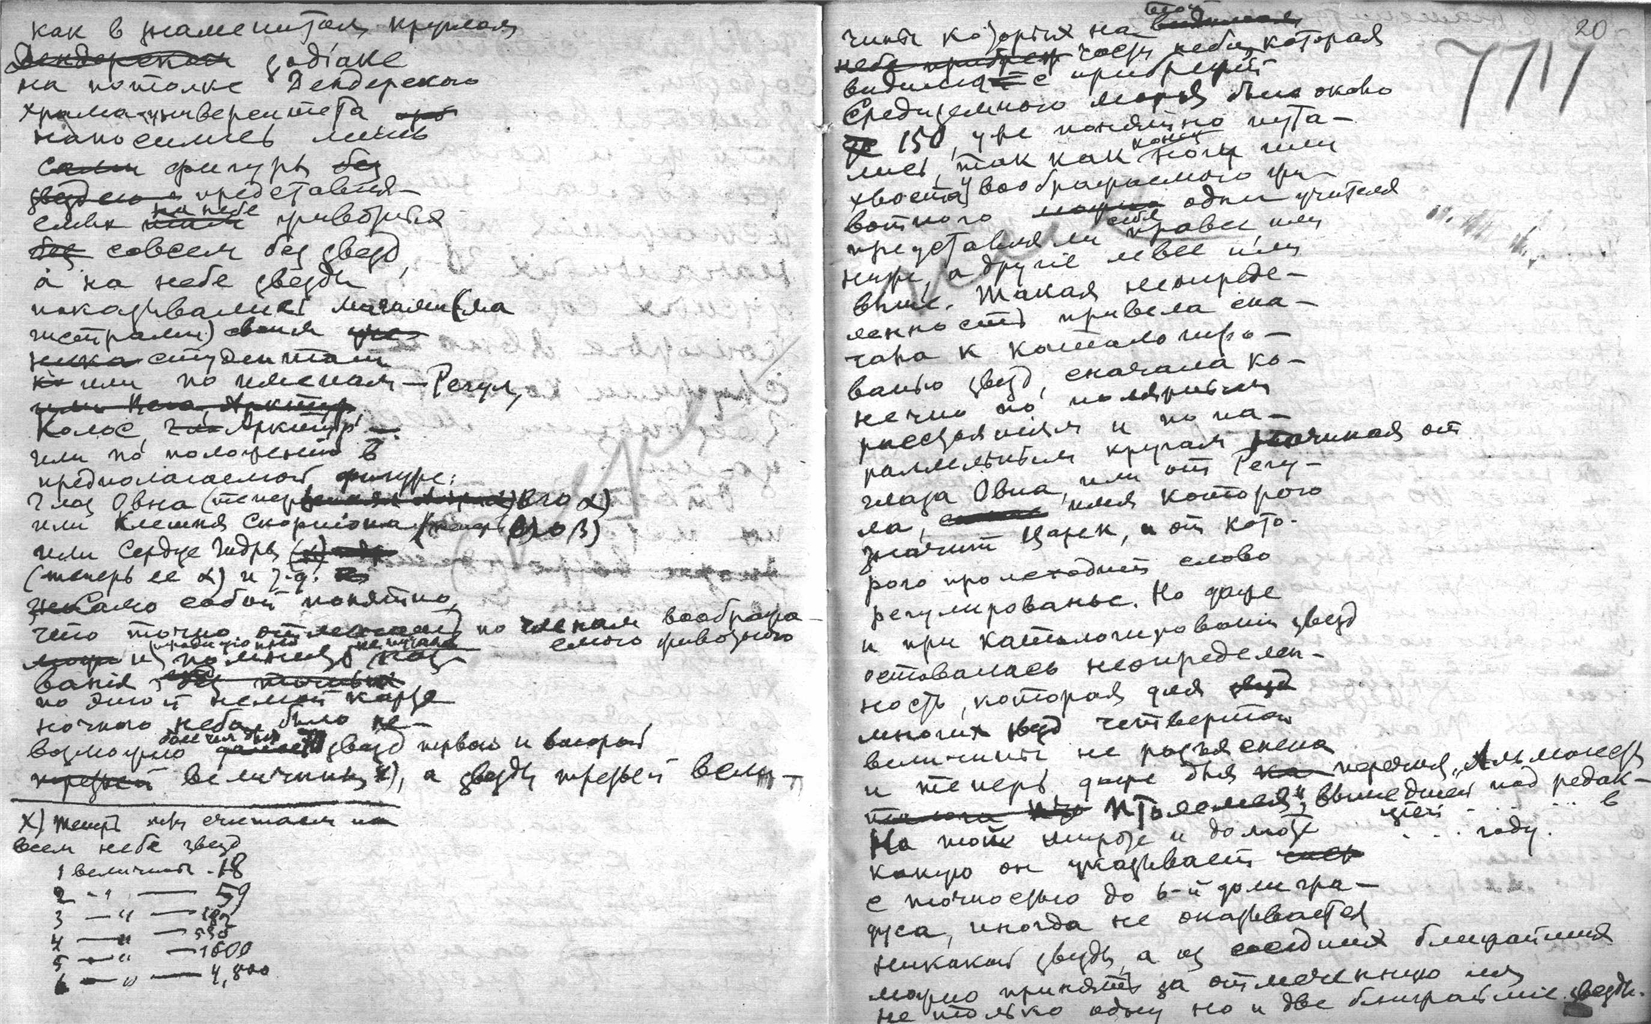 как в знаменитом круглом
Дендерском зодіаке
на потолке Дендерского
храма-университета
наносились лишь
сами фигуры без
звезд представля-
емых на небе животных
без совсем без звезд,
а на небе звезды
показывались магами (ма
гистрами) своим уче-
никам студентам
или по именам — Регул,
или Вега, Арктур,
Колос, Арктур,
или по положению в
предполагаемой фигуре:
Глаз Овна (теперь его α)
или Клешня Скорпиона (теперь его β)
или Сердце Гидры (α)
(теперь ее α) и т.д.
Само собой понятно,
что точно по членам вообража-
емого животного
и названія
по этой немой карте
ночного неба было не-
возможно звезд первой и второй
третьей величины х), а звезды третьей вели-
х) Теперь мы считаем на
всем небе звезд
1 величины - 18
2 — " — 59
3 — " — 182
4 — " — 530
5 — " — 1600
6 — " — 4,800
20
7717
чины которых на всей видимой
части неба, которая
видима с прибрежій
Средиземного моря было около
150, уже понятно пута-
лись, так как конец ноги или
хвоста воображаемого жи-
вотного одни учителя
представляли себя правее или
ниже, а другіе левее или
выше. Такая неопреде-
ленность привела сна-
чала к каталогиро-
ванью звезд, сначала ко-
нечно по полярным
расстояниям и по па-
раллельным кругам начиная от
глаза Овна, или от Регу-
ла, имя которого
значит Царек, и от кото-
рого происходит слово
регулированье. Но даже
и при каталогировании звезд
оставалась неопределен-
ность, которая для
многих звезд четвертой
величины не разъяснена
и теперь даже для перечня „Альмагеста
Птолемея", вышедшей под редак-
цией . . . . . . в
. . . году.
На той широте и долготе
какую он указывает
с точностью до 6-й доли гра-
дуса, иногда не оказывается
никакой звезды, а из соседних ближайших
можно принять за отмеченную им
не только одну но и две ближайшие звезды.